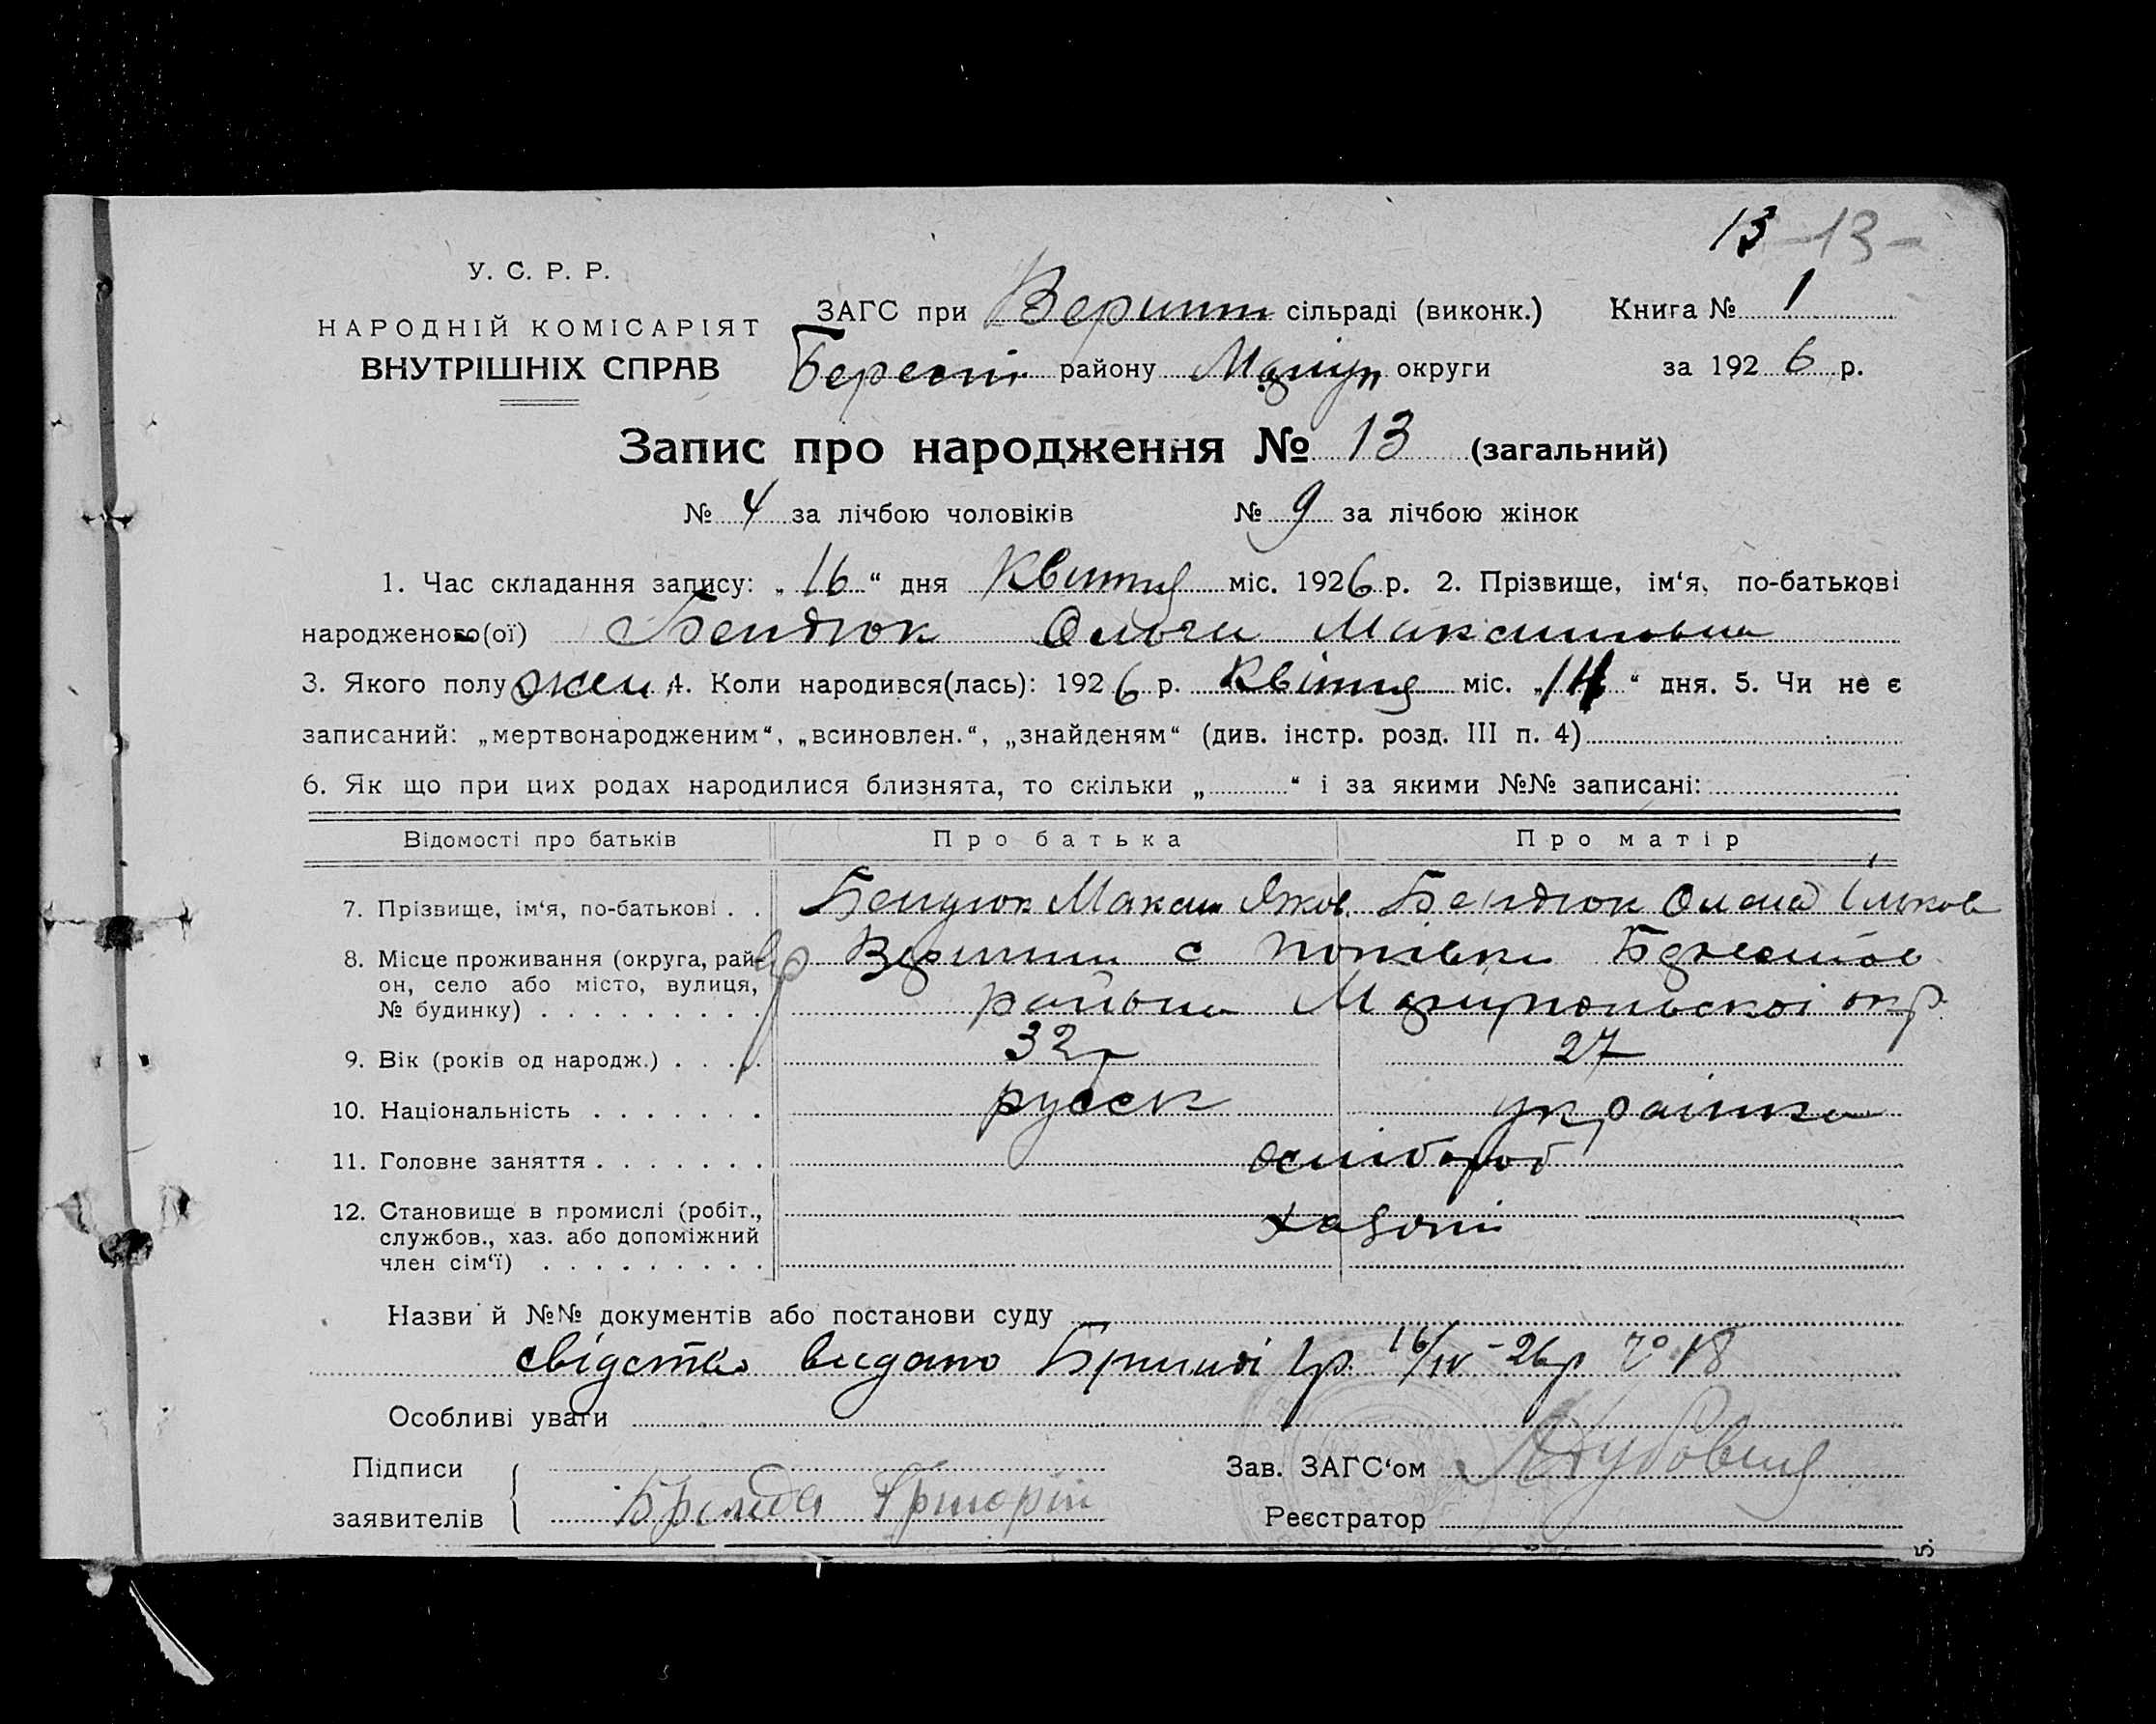 13 -13-
У. С. Р. Р.
НАРОДНІЙ КОМІСАРІЯТ
ВНУТРІШНІХ СПРАВ
ЗАГС при Вершин сільраді (виконк.) Книга № 1
Берест району Маріуп округи за 1926 р.
Запис про народження № 13 (загальний)
№ 4 за лічбою чоловіків № 9 за лічбою жінок
1. Час складання запису: „16“ дня Квітня міс. 1926 р. 2. Прізвище, ім‘я, по-батькові
народженого(ої) Бендюк Ольги Максимовна
3. Якого полу жен 4. Коли народився(лась): 1926 р. Квітня міс. „14“ дня. 5. Чи не є
записаний: „мертвонародженим“, „всиновлен.“, „знайденям“ (див. інстр. розд. III п. 4)
6. Як що при цих родах народилися близнята, то скільки „ “ і за якими №№ записані:
Відомості про батьків Про батька Про матір
7. Прізвище, ім‘я, по-батькові . . Бендюк Максим Яков. Бендюк Олена Ільков
8. Місце проживання (округа, район, село або місто, вулиця, № будинку) с Попівки
района Маріупольскоі окр.
9. Вік (років од народж.) . . . . 32 27
10. Національність . . . . . . . русск українка
11. Головне заняття . . . . . . .
12. Становище в промислі (робіт.,
службов., хаз. або допоміжний
член сім‘ї) . . . . . . . . .
Назви й №№ документів або постанови суду
свідетво видано гр. 16/IV-26р № 18
Особливі уваги
Підписи
заявителів Григорій
Зав. ЗАГС‘ом
Реєстратор
5.